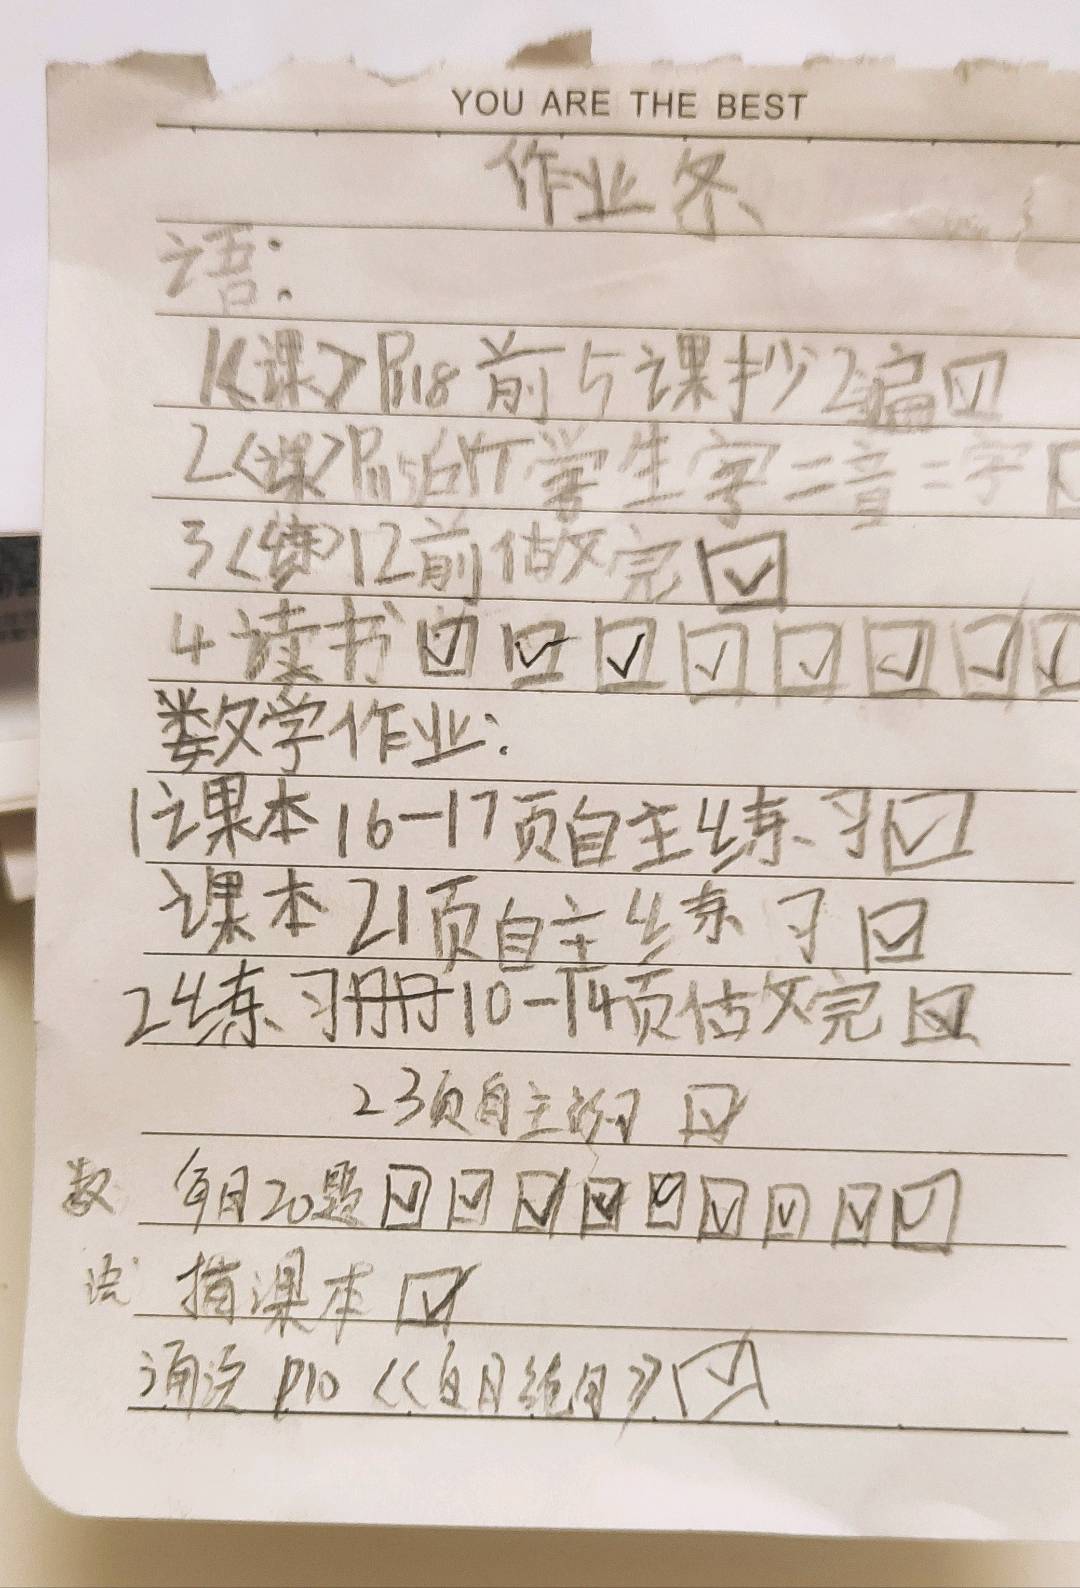 YOU ARE THE BEST
作业条
语：
1《课》P118前5课抄2遍☑
2《课》P115的所学生字二音二字
3《练》12前做完☑
4 读书☑☑☑☑☑☑☑☑
数学作业：
1课本16-17页自主练习☑
课本21页自主练习☑
2练习册10-14页做完☑
23页自主练习☑
数 每日20题☑☑☑☑☑☑☑☑☑
语 指课本☑
诵 P10《》☑